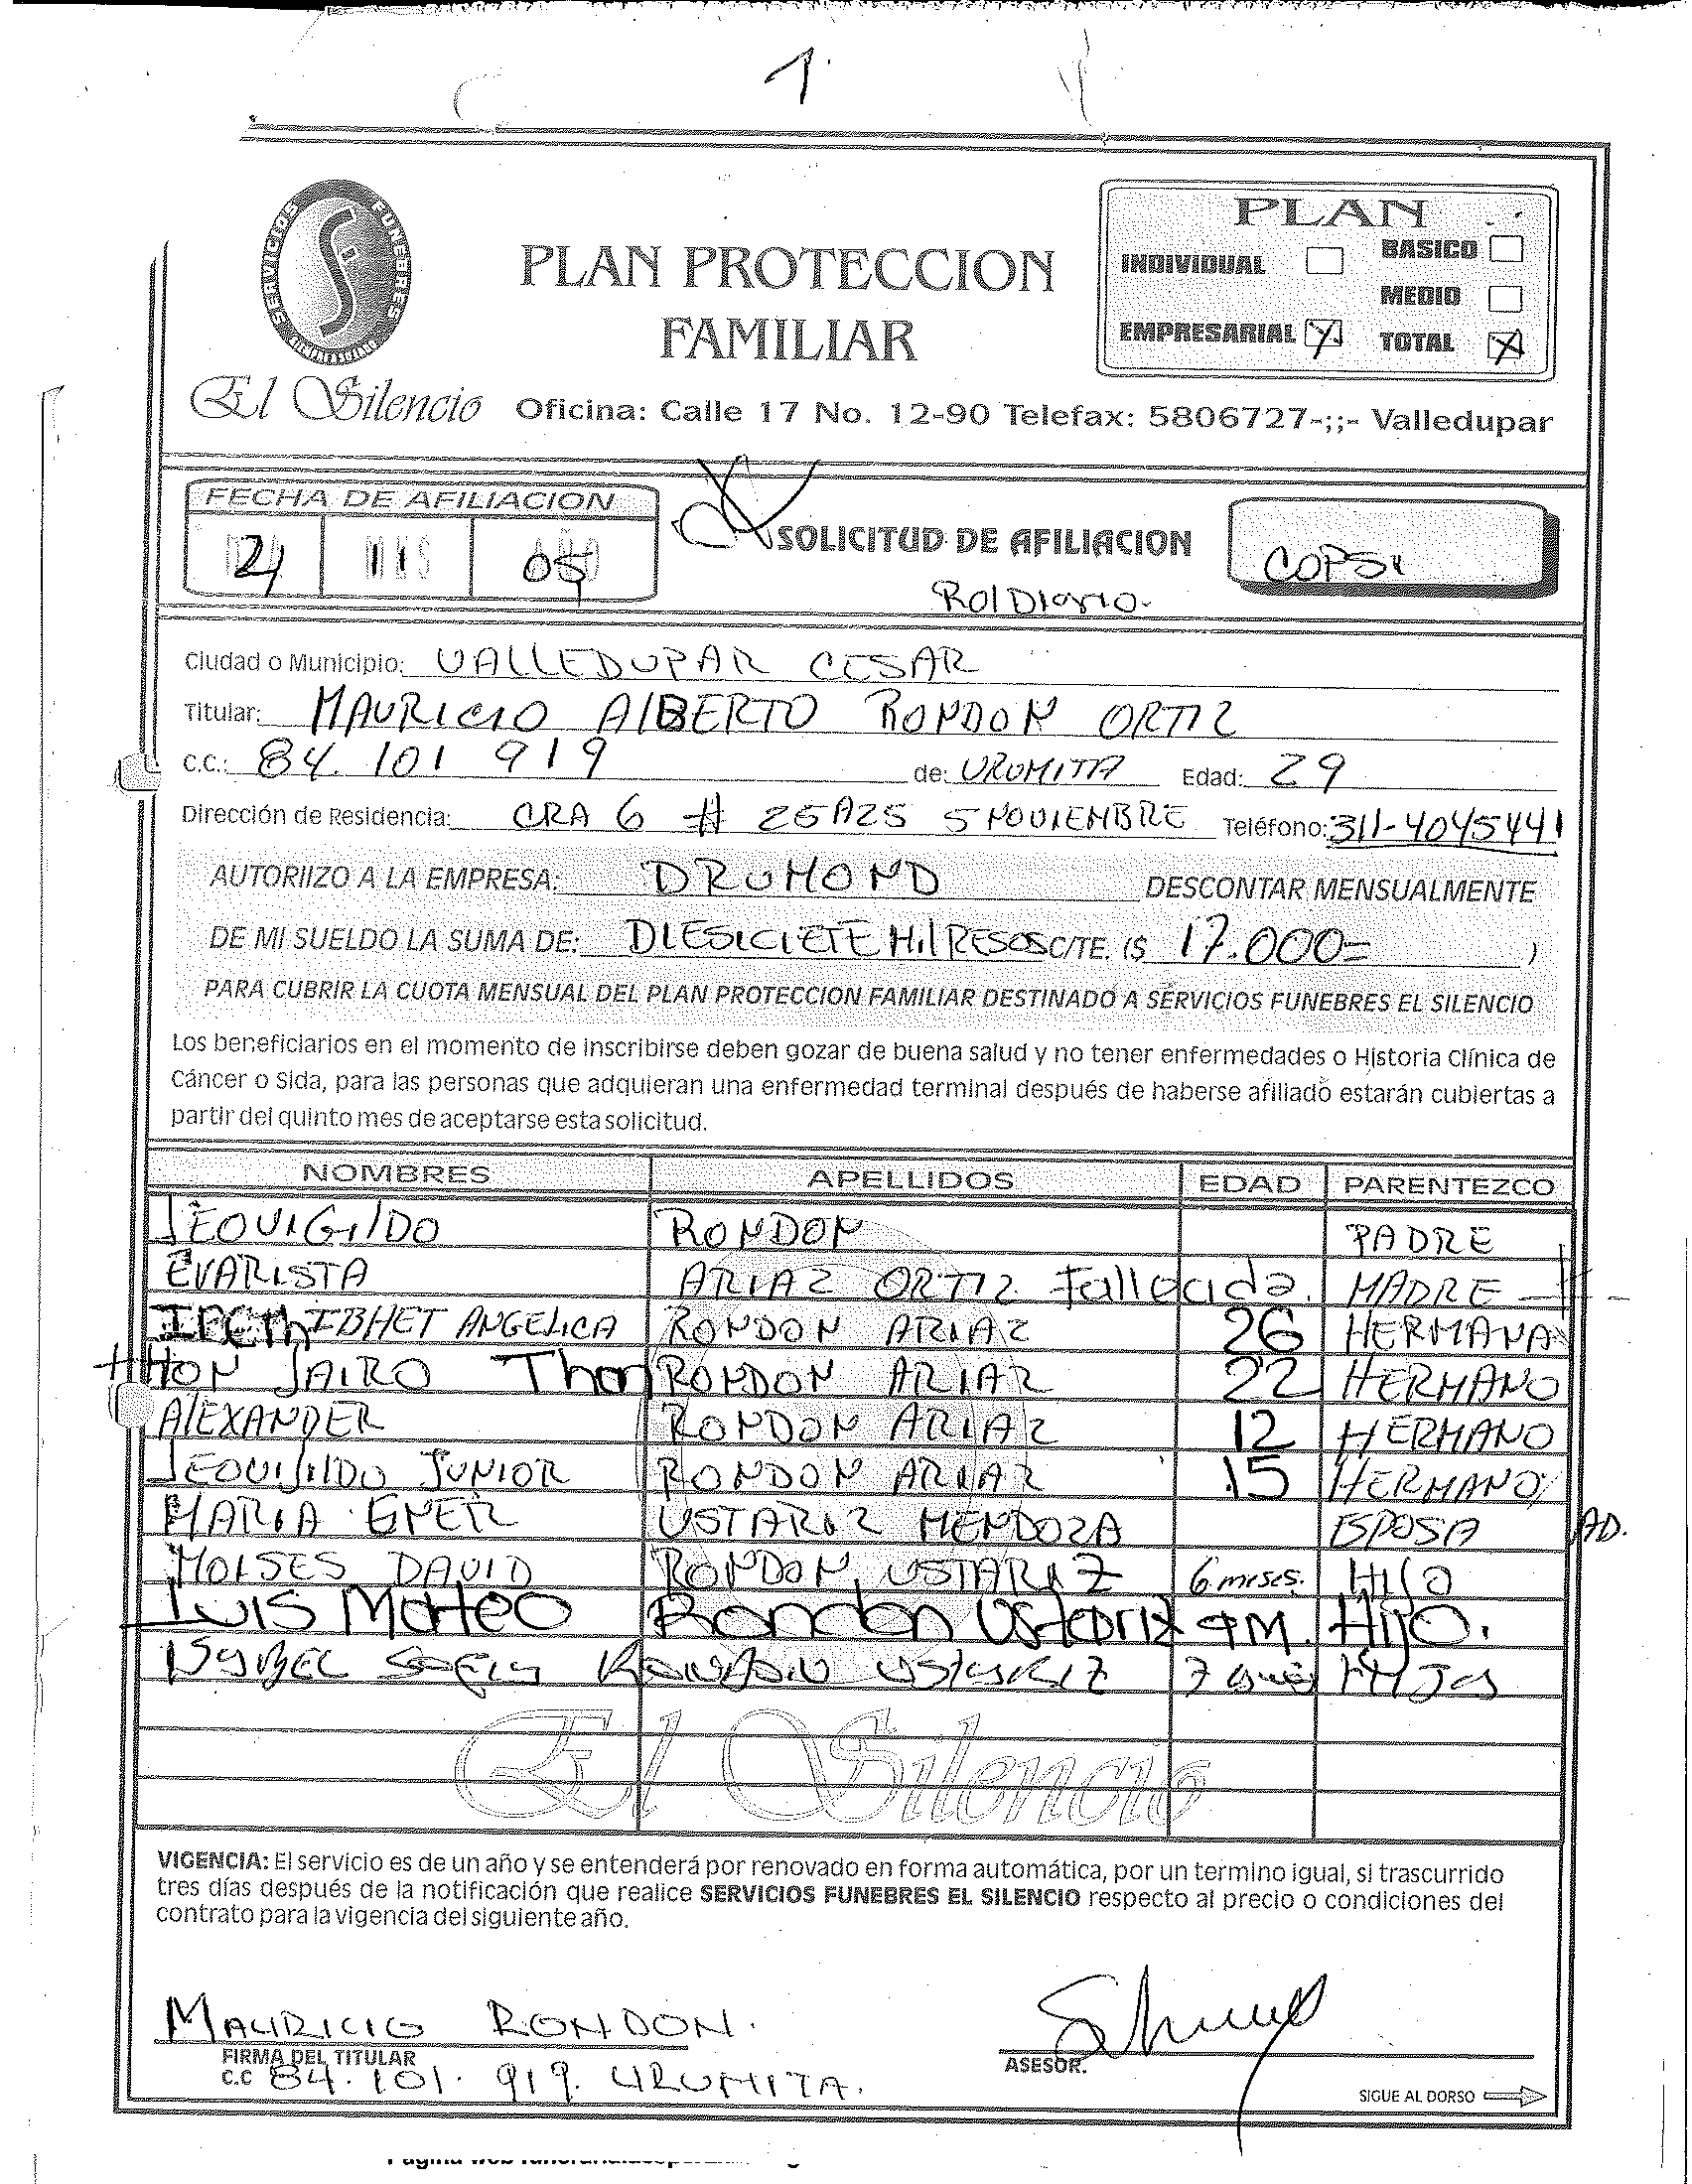 1
SERVICIOS FUNEBRES
El Silencio
PLAN PROTECCION
FAMILIAR
PLAN
INDIVIDUAL
BASICO
MEDIO
EMPRESARIAL X
TOTAL X
Oficina: Calle 17 No. 12-90 Telefax: 5806727-;;- Valledupar
FECHA DE AFILIACION
DIA MES AÑO
21 11 05
SOLICITUD DE AFILIACION
Rol Diario.
Ciudad o Municipio: VALLEDUPAR CESAR
Titular: MAURICIO AlBERTO RONDON ORTIZ
C.C.: 84.101 919 de: URUMITA Edad: 29
Dirección de Residencia: CRA 6 # 25A25 5 NOVIEMBRE Teléfono: 311-4045441
AUTORIIZO A LA EMPRESA: DRUMOND DESCONTAR MENSUALMENTE
DE MI SUELDO LA SUMA DE: DIESICIETE Mil PESOS C/TE. ($ 17.000= )
PARA CUBRIR LA CUOTA MENSUAL DEL PLAN PROTECCION FAMILIAR DESTINADO A SERVICIOS FUNEBRES EL SILENCIO
Los beneficiarios en el momento de inscribirse deben gozar de buena salud y no tener enfermedades o Historia Clínica de
Cáncer o Sida, para las personas que adquieran una enfermedad terminal después de haberse afiliado estarán cubiertas a
partir del quinto mes de aceptarse esta solicitud.
NOMBRES APELLIDOS EDAD PARENTEZCO
LEOVIGIlDO RONDON PADRE
EVARISTA ARIAZ ORTIZ Fallecida. MADRE
IBHET ANGELICA RONDON ARIAZ 26 HERMANA
HON JAIRO Thon RONDON ARIAZ 22 HERMANO
AlEXANDER RONDON ARIAZ 12 HERMANO
LEOVIGIlDO JUNIOR RONDON ARIAZ 15 HERMANO
MARIA ENER USTARIZ MENDOZA ESPOSA AD.
MOISES DAVID RONDON USTARIZ 6 meses. HIJO
LUIS Mateo Rondon Ustariz 9M. Hijo.
RONDON USTARIZ 7 HIJA
El Silencio
VIGENCIA: El servicio es de un año y se entenderá por renovado en forma automática, por un termino igual, si trascurrido
tres días después de la notificación que realice SERVICIOS FUNEBRES EL SILENCIO respecto al precio o condiciones del
contrato para la vigencia del siguiente año.
MAURICIO RONDON.
FIRMA DEL TITULAR
C.C 84.101.919. URUMITA.
ASESOR.
SIGUE AL DORSO